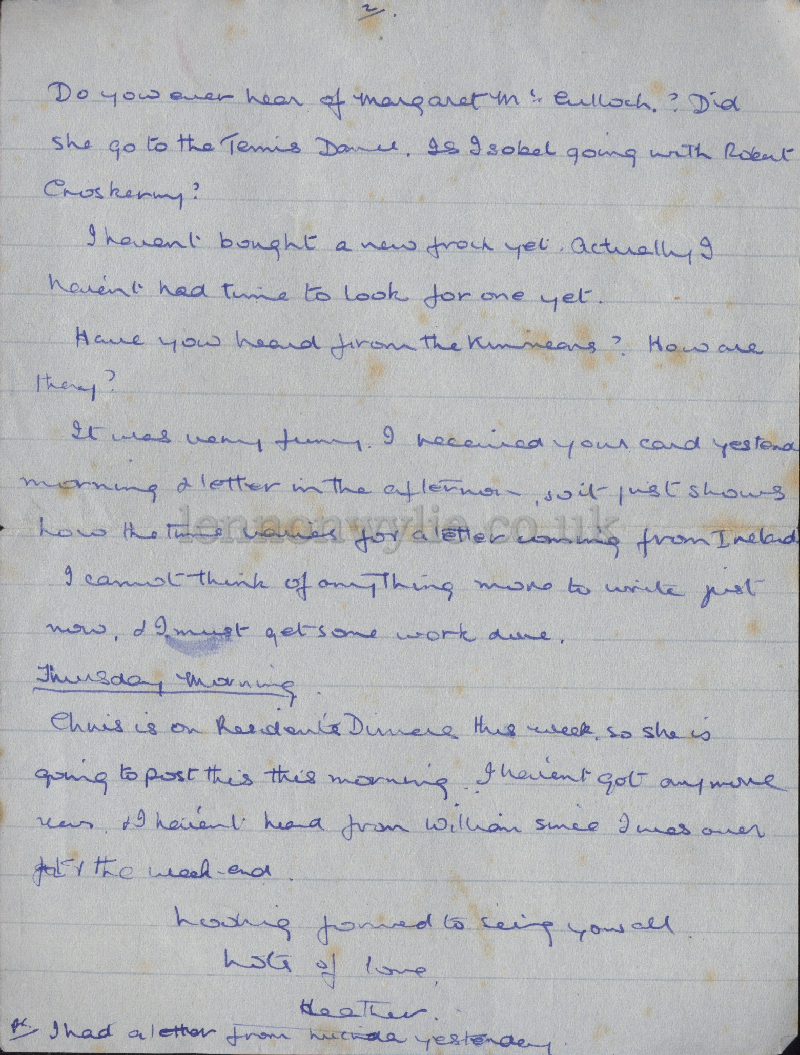 2.
Do you ever hear of Margaret Mc Culloch.? Did
she go to the Tennis Dance. Is Isobel going with Robert
Croskerry?
I haven't bought a new frock yet. Actually I
haven't had time to look for one yet.
Have you heard from the Kinnears? How are
they?
It was very funny. I received your card yesterd
morning & letter in the afternoon, so it just shows
how the time varies for a letter coming from Ireland
lennonwylie.co.uk
I cannot think of anything more to write just
now, & I must get some work done.
Thursday Morning
Chris is on Residents Dinners this week, so she is
going to post this this morning. I haven't got anymore
news, & I haven't heard from William since I was over
for the week-end.
Looking forward to seeing you all.
Lots of love,
Heather.
PS I had a letter from Lucinda yesterday.